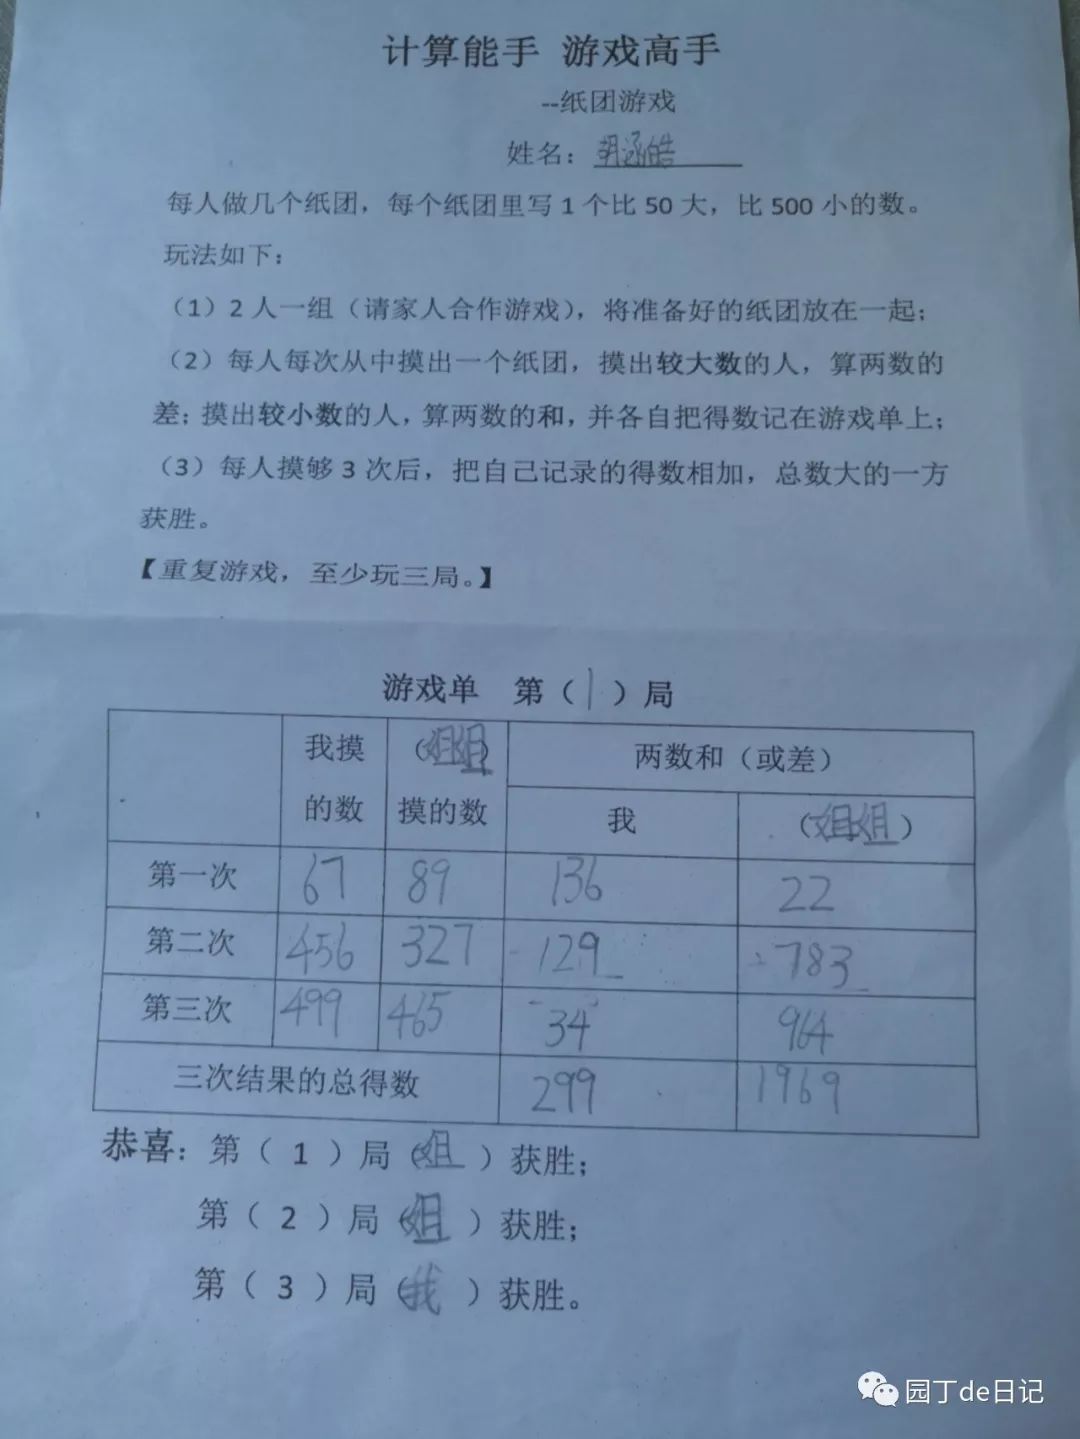 计算能手 游戏高手
--纸团游戏
姓名：胡涵皓
每人做几个纸团，每个纸团里写1个比50大，比500小的数。
玩法如下：
（1）2人一组（请家人合作游戏），将准备好的纸团放在一起；
（2）每人每次从中摸出一个纸团，摸出较大数的人，算两数的
差；摸出较小数的人，算两数的和，并各自把得数记在游戏单上；
（3）每人摸够3次后，把自己记录的得数相加，总数大的一方
获胜。
【重复游戏，至少玩三局。】
游戏单 第（1）局
我摸的数 （姐姐）摸的数 两数和（或差）
我 （姐姐）
第一次 67 89 136 22
第二次 456 327 129 783
第三次 499 465 34 964
三次结果的总得数 299 1969
恭喜：第（ 1 ）局（姐 ）获胜；
第（ 2 ）局（姐 ）获胜；
第（ 3 ）局（我 ）获胜。
园丁de日记